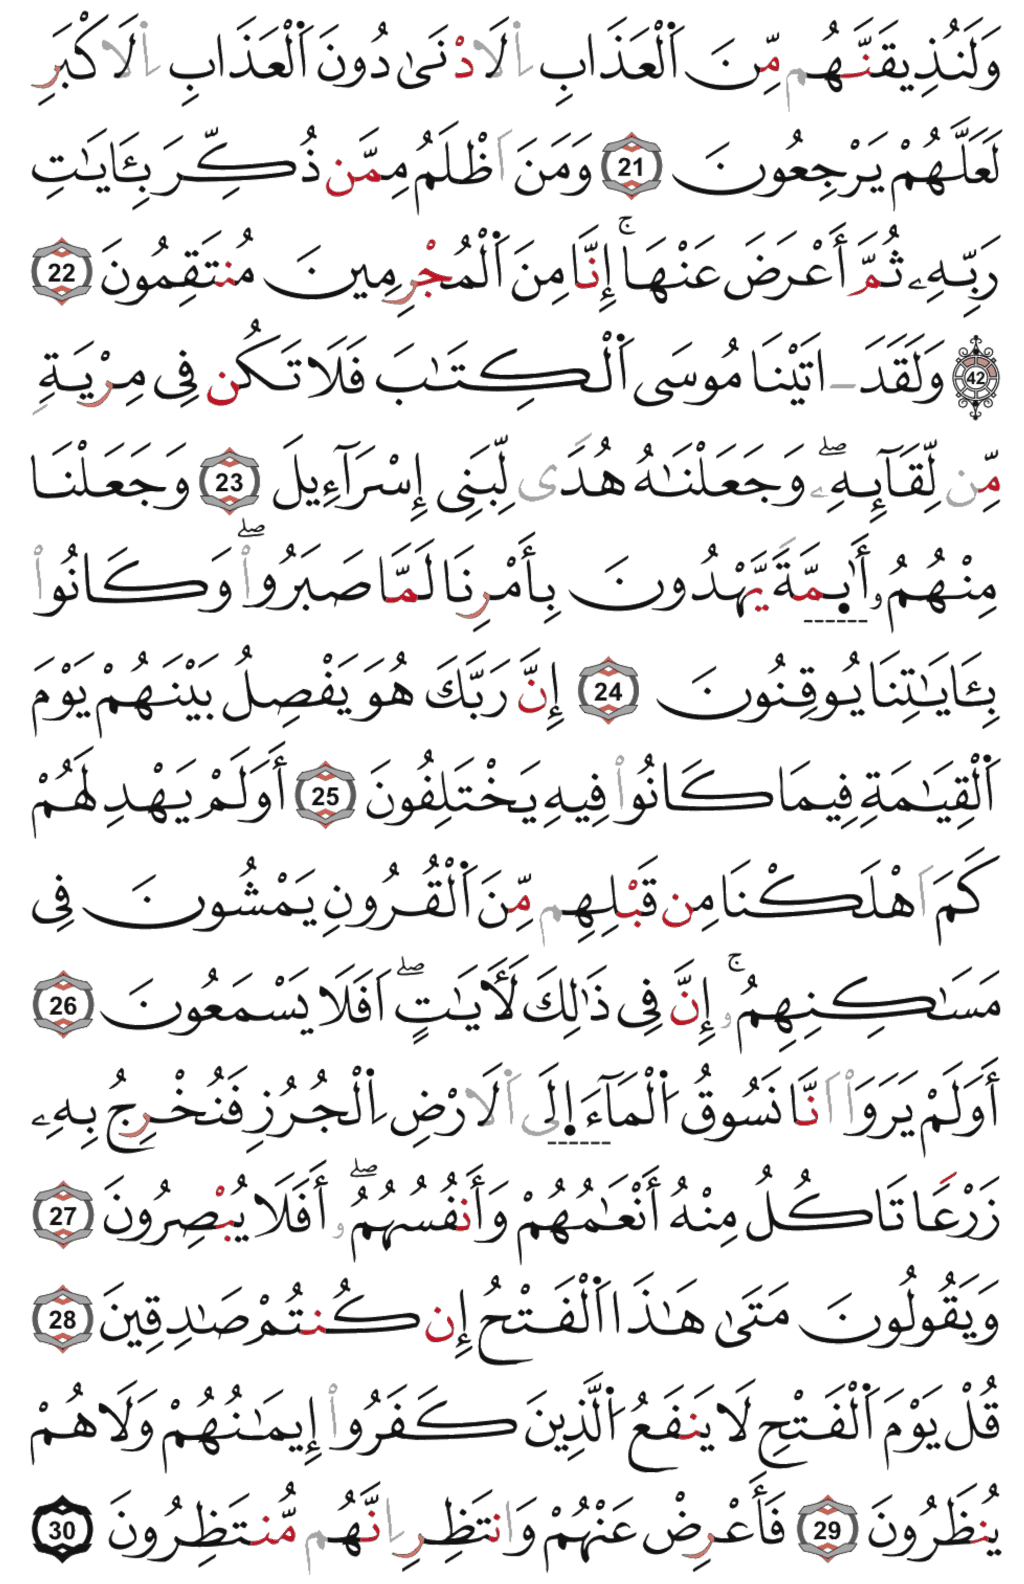 وَلَنُذِيقَنَّهُم مِّنَ اَ۬لْعَذَابِ اِ۬لَادْنَىٰ دُونَ اَ۬لْعَذَابِ اِ۬لَاكْبَرِ
لَعَلَّهُمْ يَرْجِعُونَ 21 وَمَنَ اَظْلَمُ مِمَّن ذُكِّرَ بِـَٔايَـٰتِ
رَبِّهِۦ ثُمَّ أَعْرَضَ عَنْهَاۚ إِنَّا مِنَ اَ۬لْمُجْرِمِينَ مُنتَقِمُونَ 22
42 وَلَقَدَ ـ اتَيْنَا مُوسَى اَ۬لْكِتَـٰبَ فَلَا تَكُن فِى مِرْيَةٍ
مِّن لِّقَآئِهِۦۖ وَجَعَلْنَـٰهُ هُدًى لِّبَنِى إِسْرَآءِيلَ 23 وَجَعَلْنَا
مِنْهُمُۥ أَئِمَّةً يَهْدُونَ بِأَمْرِنَا لَمَّا صَبَرُواْۖ وَكَانُواْ
بِـَٔايَـٰتِنَا يُوقِنُونَ 24 إِنَّ رَبَّكَ هُوَ يَفْصِلُ بَيْنَهُمْ يَوْمَ
اَ۬لْقِيَـٰمَةِ فِيمَا كَانُواْ فِيهِ يَخْتَلِفُونَ 25 أَوَلَمْ يَهْدِ لَهُمْ
كَمَ اَهْلَكْنَا مِن قَبْلِهِم مِّنَ اَ۬لْقُرُونِ يَمْشُونَ فِى
مَسَـٰكِنِهِمُۥۚ إِنَّ فِى ذَٰلِكَ لَأَيَـٰتٍۖ اَفَلَا يَسْمَعُونَ 26
أَوَلَمْ يَرَوَاْ اَنَّا نَسُوقُ اُ۬لْمَآءَ اِ۪لَى اَ۬لَارْضِ اِ۬لْجُرُزِ فَنُخْرِجُ بِهِۦ
زَرْعًا تَاكُلُ مِنْهُ أَنْعَـٰمُهُمْ وَأَنفُسُهُمُۥۖ أَفَلَا يُبْصِرُونَ 27
وَيَقُولُونَ مَتَىٰ هَـٰذَا اَ۬لْفَتْحُ إِن كُنتُمْ صَـٰدِقِينَ 28
قُلْ يَوْمَ اَ۬لْفَتْحِ لَا يَنفَعُ اُ۬لَّذِينَ كَفَرُواْ إِيمَـٰنُهُمْ وَلَا هُمْ
يُنظَرُونَ 29 فَأَعْرِضْ عَنْهُمْ وَانتَظِرِ اِنَّهُم مُّنتَظِرُونَ 30